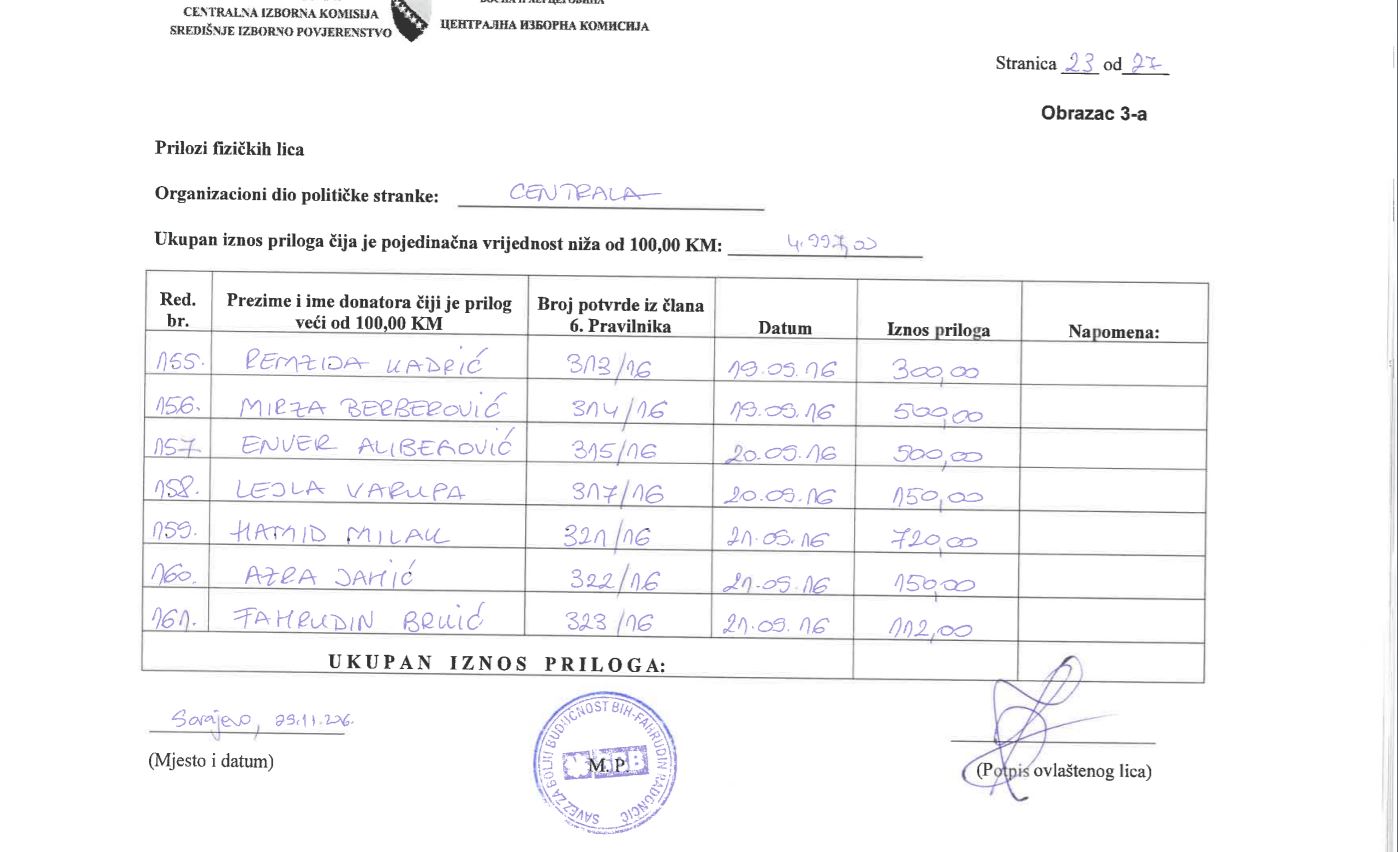 CENTRALNA IZBORNA KOMISIJA
SREDIŠNJE IZBORNO POVJERENSTVO
ЦЕНТРАЛНА ИЗБОРНА КОМИСИЈА
Stranica 23 od 27
Obrazac 3-a
Prilozi fizičkih lica
Organizacioni dio političke stranke: CENTRALA
Ukupan iznos priloga čija je pojedinačna vrijednost niža od 100,00 KM: 4.997,00
Red. br. Prezime i ime donatora čiji je prilog veći od 100,00 KM Broj potvrde iz člana 6. Pravilnika Datum Iznos priloga Napomena:
155. REMZIDA KADRIĆ 313/16 19.09.16 300,00
156. MIRZA BERBEROVIĆ 314/16 19.09.16 500,00
157. ENVER ALIBEGOVIĆ 315/16 20.09.16 500,00
158. LEJLA VARUPA 317/16 20.09.16 150,00
159. HAMID MILAK 321/16 21.09.16 720,00
160. AZRA JAHIĆ 322/16 21.09.16 150,00
161. FAHRUDIN BRKIĆ 323/16 21.09.16 112,00
UKUPAN IZNOS PRILOGA:
Sarajevo, 29.11.2016.
(Mjesto i datum)
SAVEZ ZA BOLJU BUDUĆNOST BIH-FAHRUDIN RADONČIĆ
M.P.
(Potpis ovlaštenog lica)